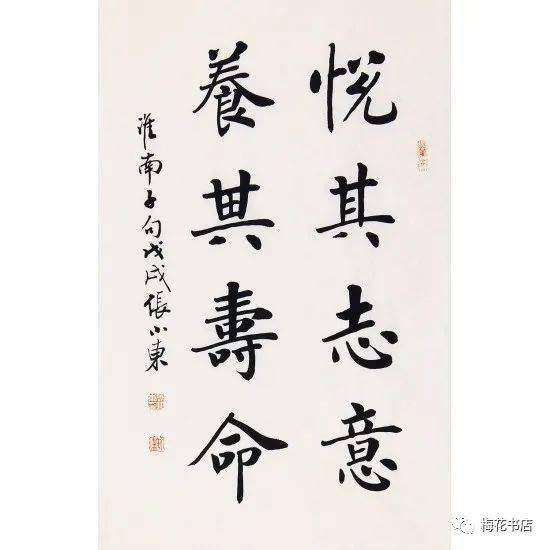 悦其志意
養其壽命
淮南子句戊戌張小東
梅花书店